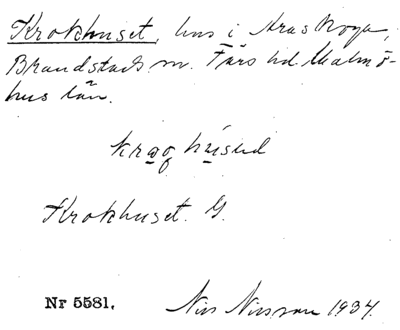 Krokhuset, hus i Araskoga,
Brandstads sn. Färs hd. Malmö-
hus län.
kroq húsed
Krokhuset. G.
Nr 5581.
Nils Nilsson 1934.